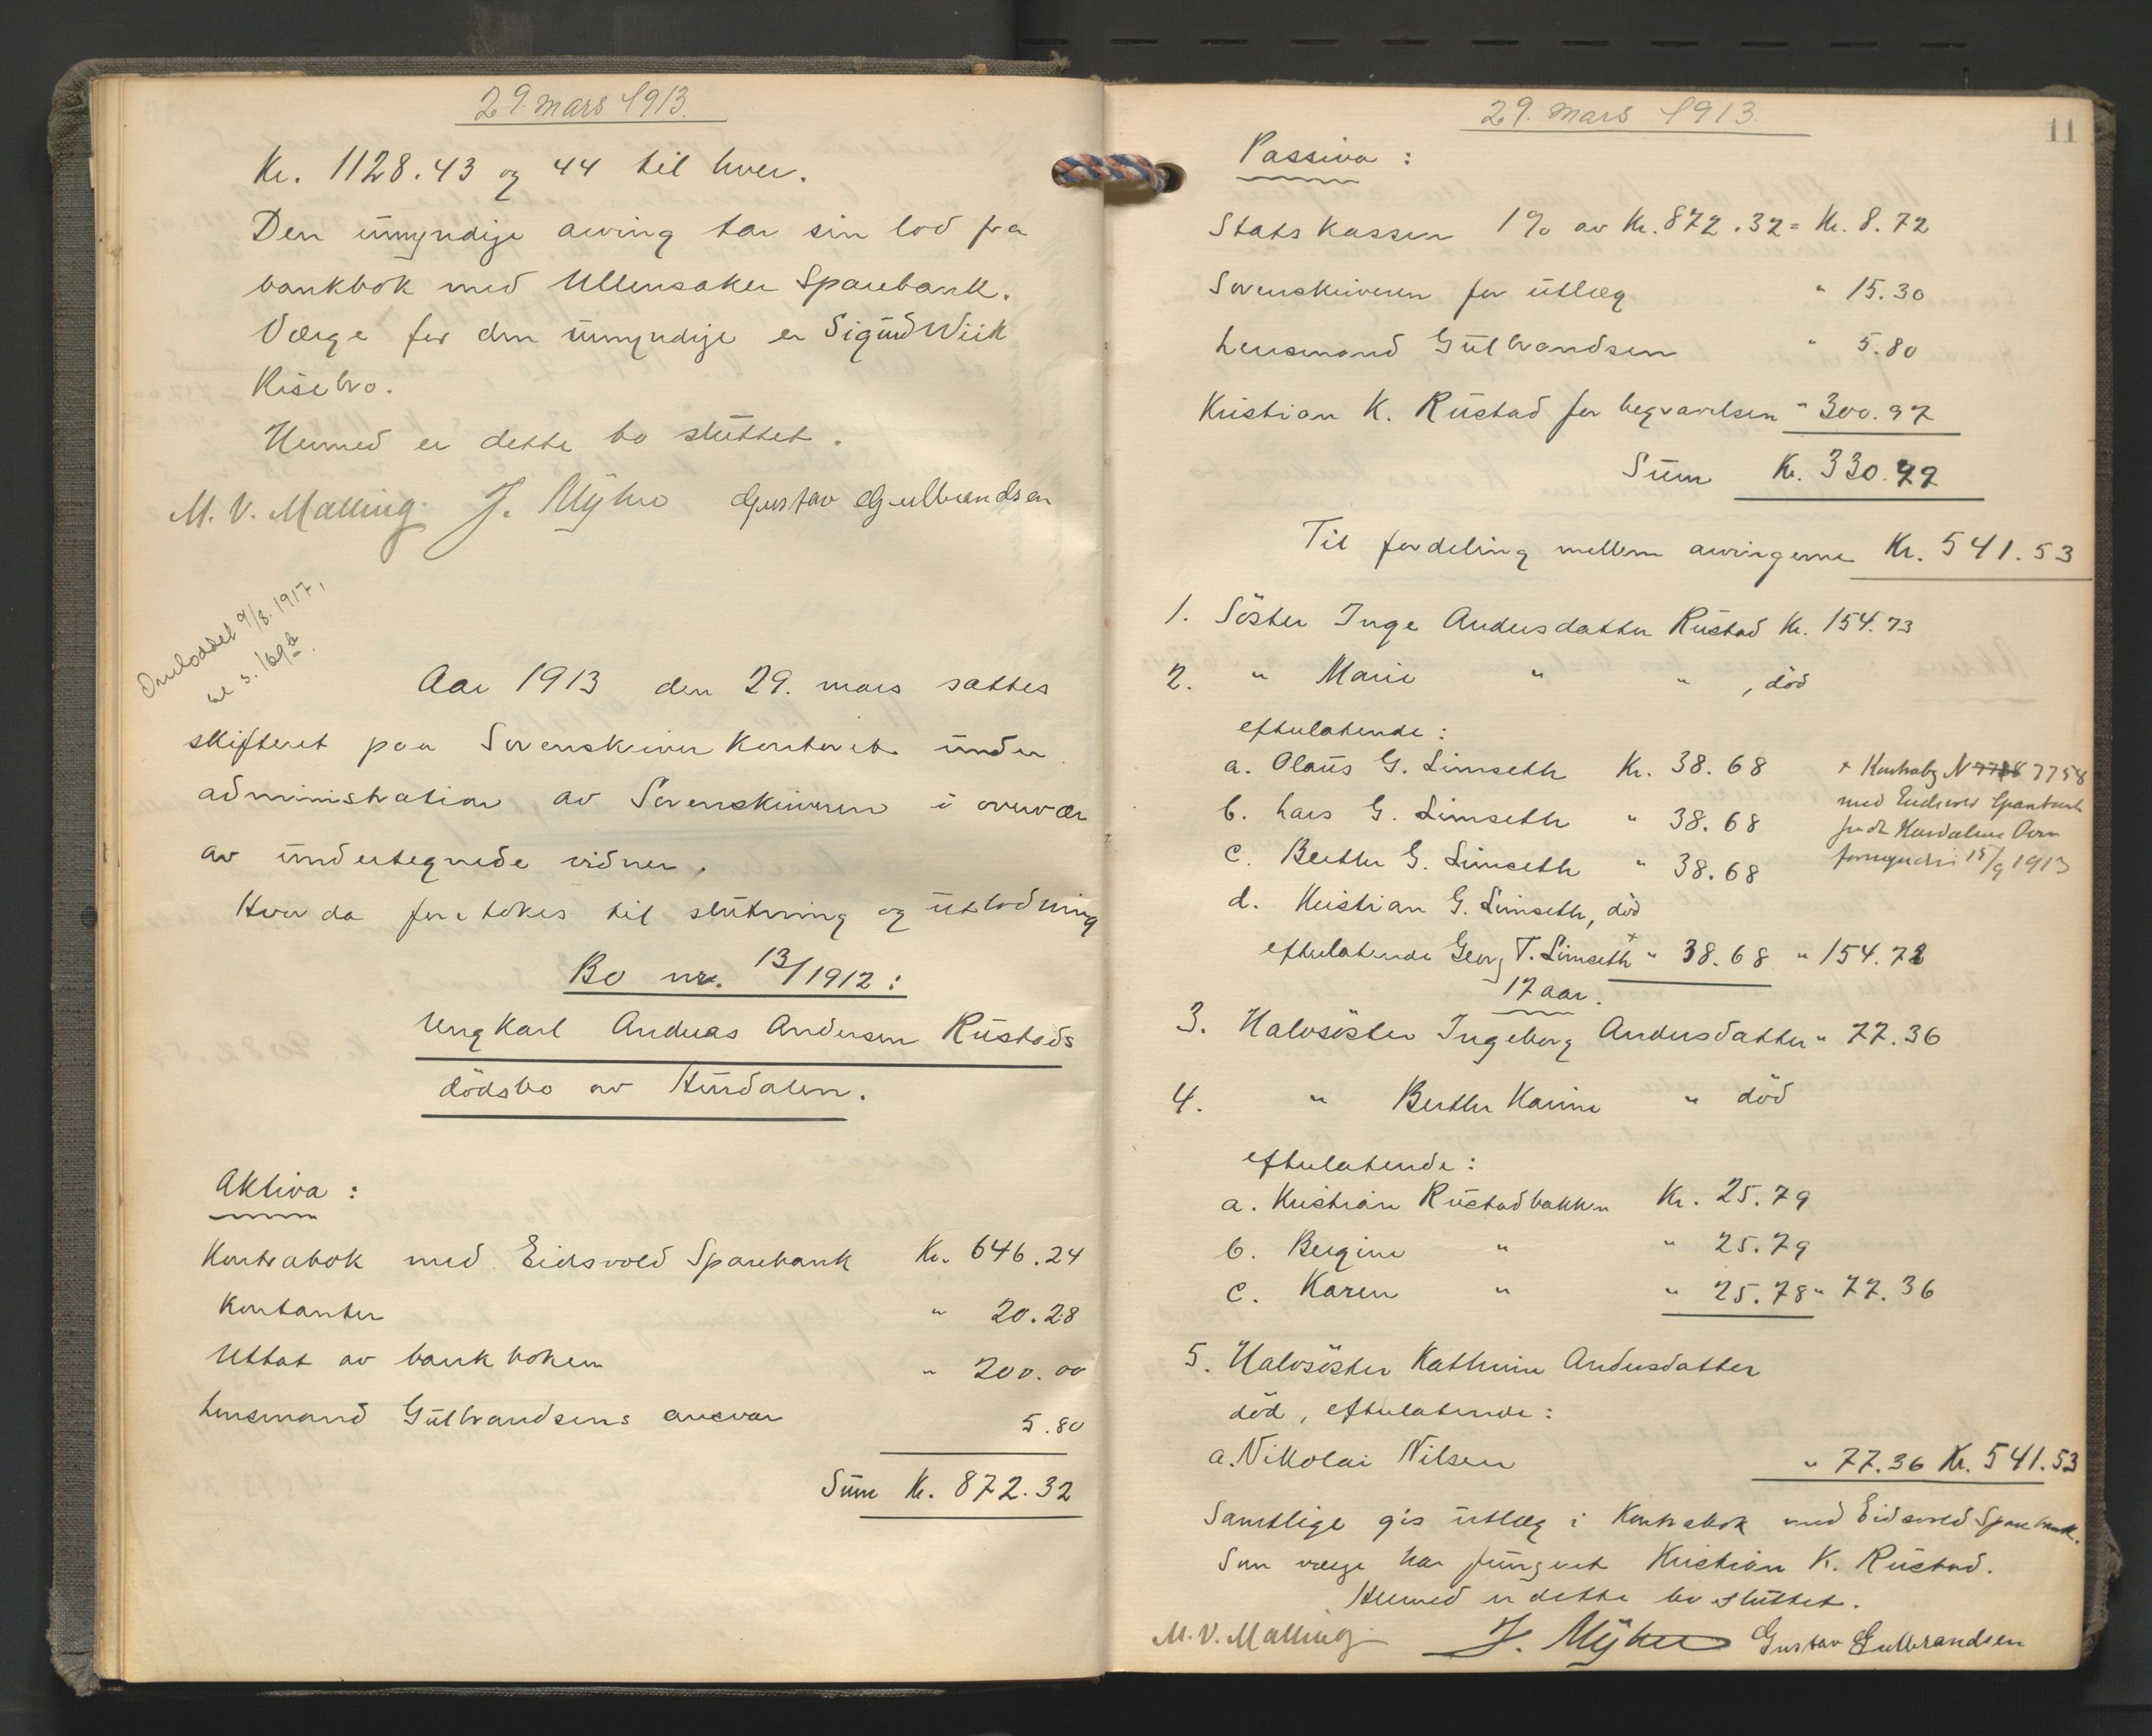 29. mars 1913.
Kr. 1128.43 og 44 til hver.
Den umyndige arving tar sin lod fra
bankbok med Ullensaker Sparebank.
Værge for den umyndige er Sigurd Wiik
Kisebro.
Hermed er dette bo sluttet.
M. V. Malling. J. Myhre Gustav Gulbrandsen
Omloddet 9/8. 1917,
se s. 169b.
Aar 1913 den 29. mars sattes
skifteret paa Sorenskriverkontoret under
administration av Sorenskriveren i overvær
av undertegnede vidner.
Hvor da foretokes til slutning og utlodning
Bo nr. 13/1912:
Ungkarl Andreas Andersen Rustads
dödsbo av Hurdalen.
Aktiva:
Kontrabok med Eidsvold Sparebank Kr. 646.24
Kontanter " 20.28
Uttat av bankboken " 200.00
Lensmand Gulbrandsens ansvar 5.80
Sum Kr. 872.32
29. mars 1913.
11
Passiva:
Statskassen 1% av Kr. 872.32 = Kr. 8.72
Sorenskriveren for utlæg " 15.30
Lensmand Gulbrandsen " 5.80
Kristian K. Rustad for begravelsen " 300.97
Sum Kr. 330.79
Til fordeling mellem arvingerne Kr. 541.53
1. Söster Inge Andersdatter Rustad Kr. 154.73
2. " Marie " " , död
efterlatende:
a. Olaus G. Limseth Kr. 38.68
b. Lars G. Limseth " 38.68
c. Berthe G. Limseth " 38.68
d. Kristian G. Limseth, död
efterlatende Georg T. Limseth + " 38.68 " 154.72
17 aar.
+ Kontrabg N 7758
med Eidsvold Sparebank
Hurdalens Over
formynderi 15/9 1913
3. Halvsöster Ingeborg Andersdatter " 77.36
4. " Berthe Karine " död
efterlatende:
a. Kristian Rustadbakken Kr. 25.79
b. Bergine " " 25.79
c. Karen " " 25.78 " 77.36
5. Halvsöster Kathrine Andersdatter
död, efterlatende:
a. Nikolai Nilsen " 77.36 Kr. 541.53
Samtlige gis utlæg i Kontrabok med Eidsvold Sparebank.
Som værge har fungeret Kristian K. Rustad.
Hermed er dette bo sluttet.
M. V. Malling J. Myhre Gustav Gulbrandsen